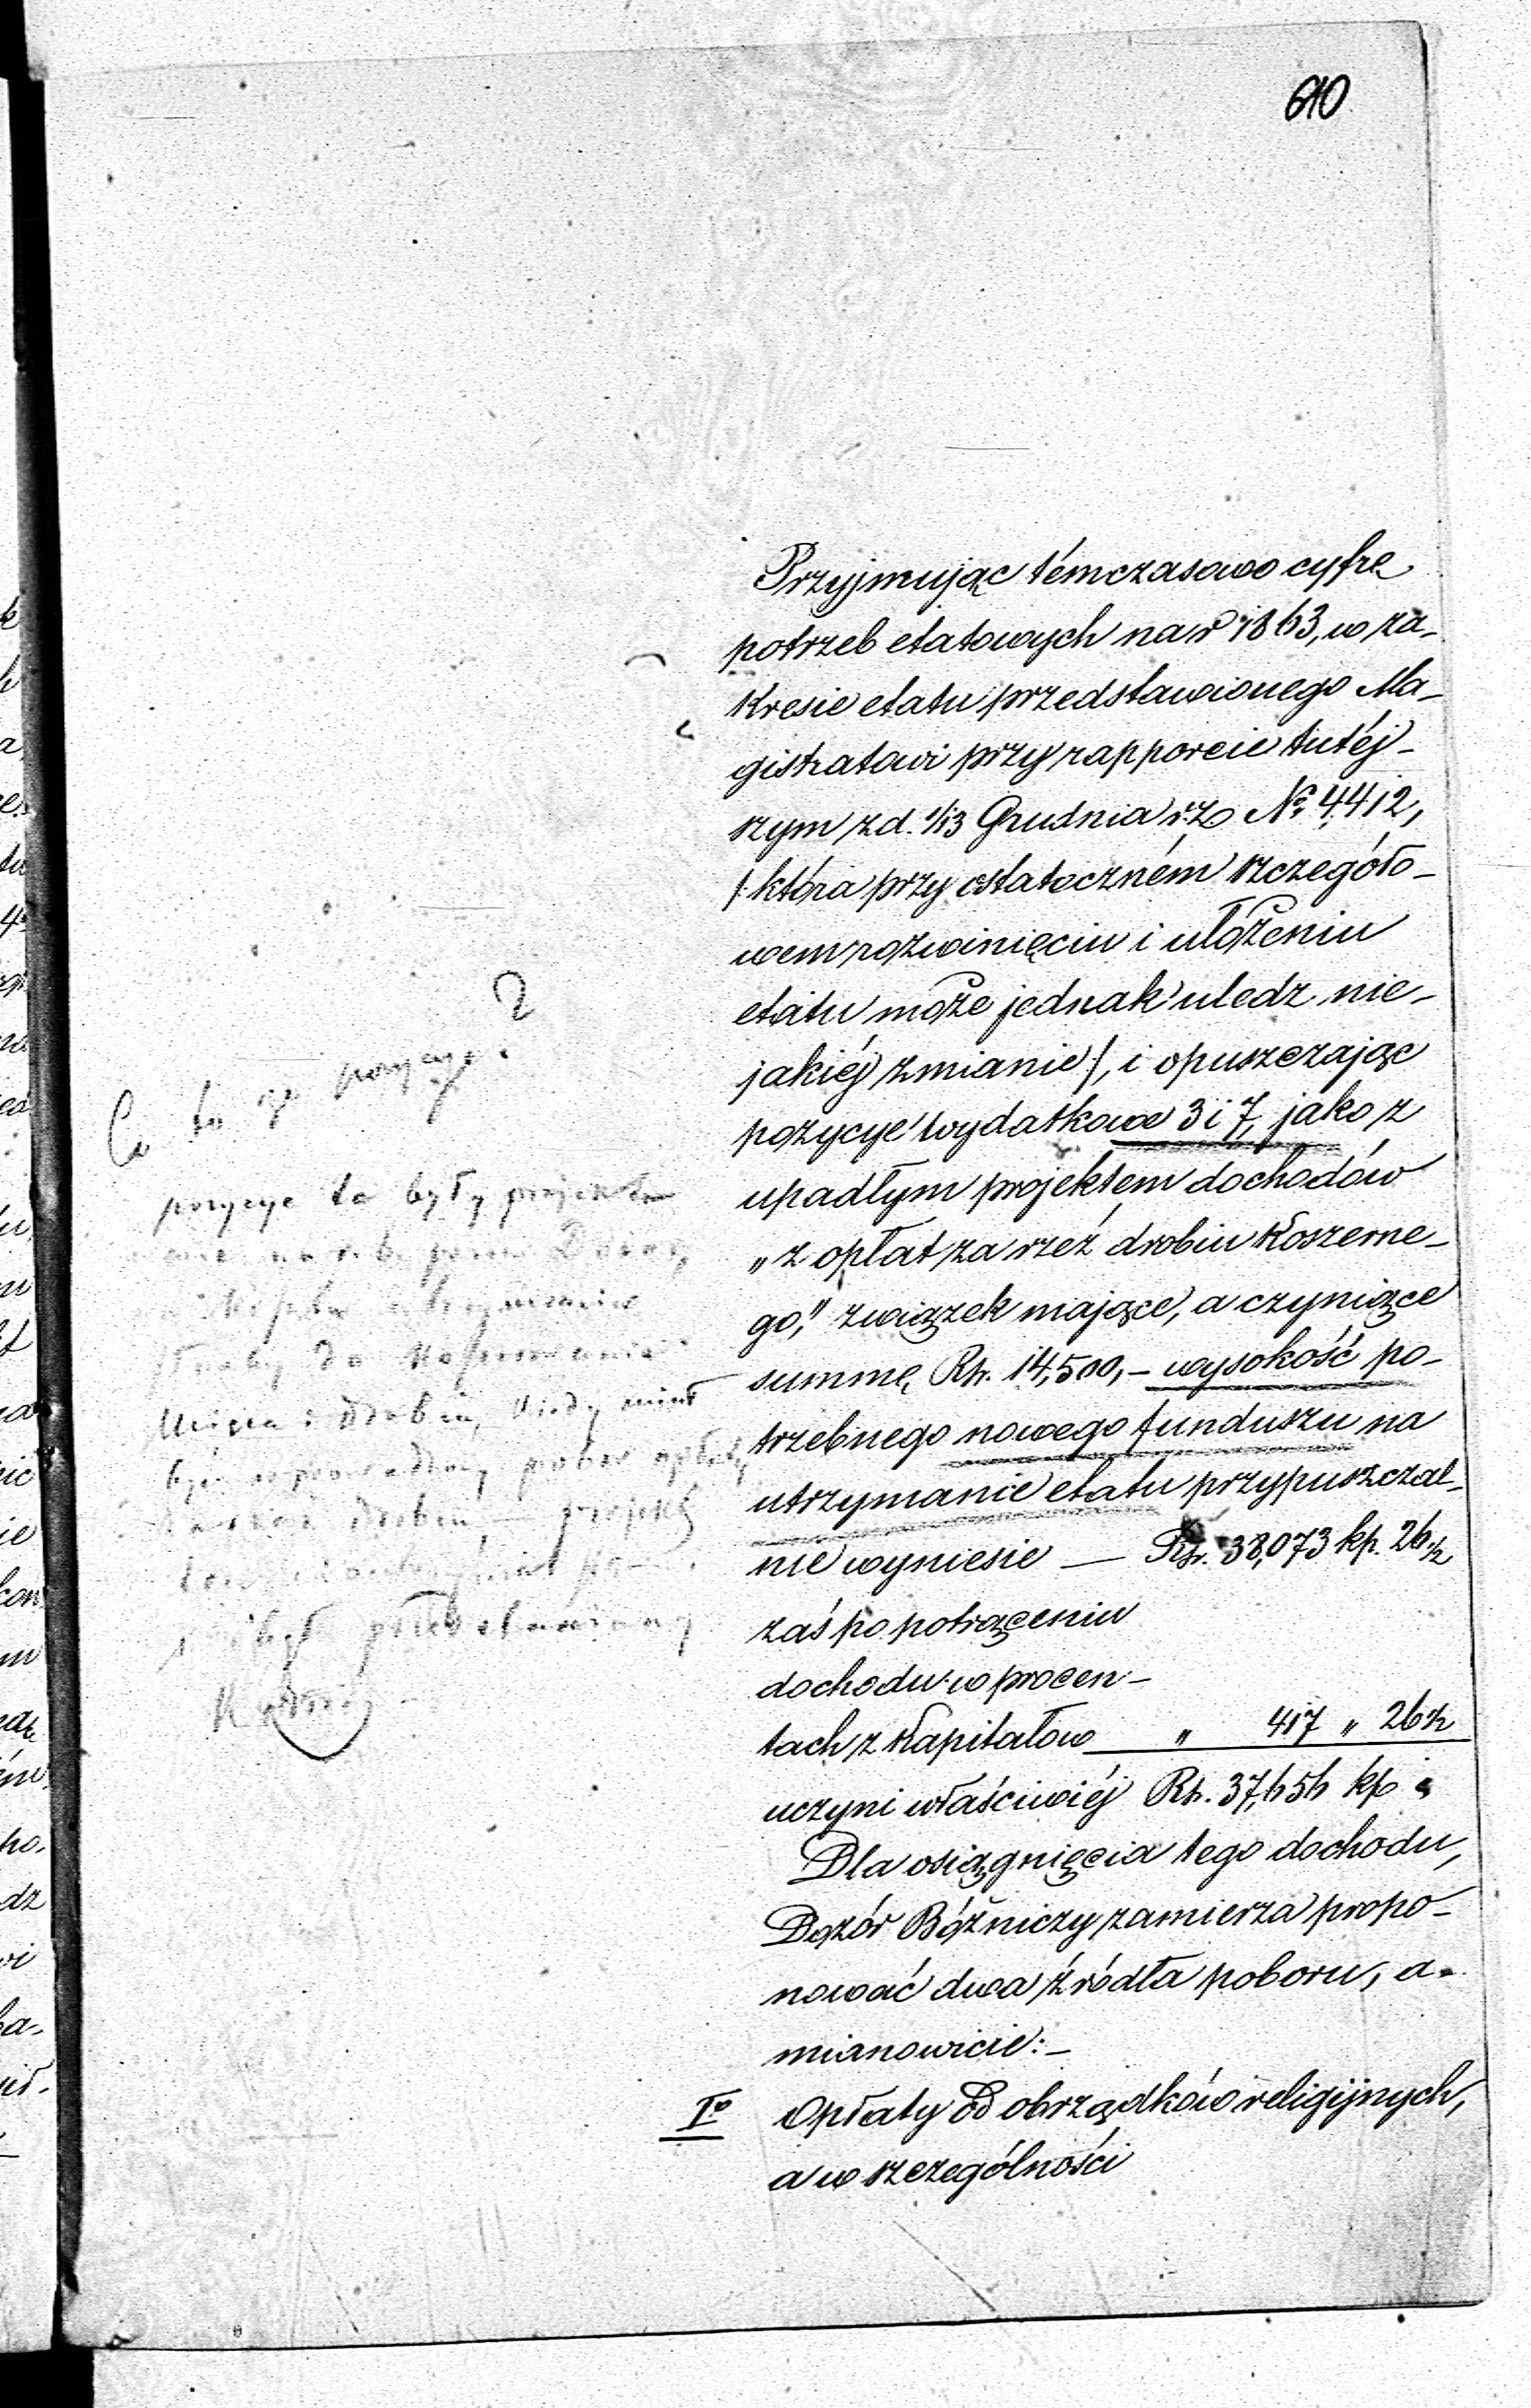 610
Przyjmując témczasowo cyfrę
potrzeb etatowych na r 1863, w za-
kresie etatu przedstawionego Ma-
gistratowi przy rapporcie tutéj-
szym z d. 1/13 Grudnia r.z. № 4412,
/: która przy ostateczném szczegóło-
wem rozwinięciu i ułożeniu
etatu może jednak uledz nie-
jakiéj zmianie :/, i opuszczając
pozycye wydatkowe 3 i 7, jako z
upadłym projektem dochodów
„z opłat za rzeź drobiu koszerne-
go," związek mające, a czyniące
summę Rs. 14,500, – wysokość po-
trzebnego nowego funduszu na
utrzymanie etatu przypuszczal-
nie wyniesie — Rs. 38,073 kp. 26 ½
zaś po potrąceniu
dochodu w procen-
tach z kapitałow „ 417 „ 26 ½
uczyni właściwiéj Rs. 37,656 kp „
Dla osiągnięcia tego dochodu,
Dozór Bóżniczy zamierza propo-
nować dwa źródła poboru, a-
mianowicie: –
I° Opłaty od obrządków religijnych,
a w szczególności
Co to za pozycye?
pozycye te były
drobiu, kiedy miał
być wprowadzony pobór opłaty
drobiu, –
był przedstawiony